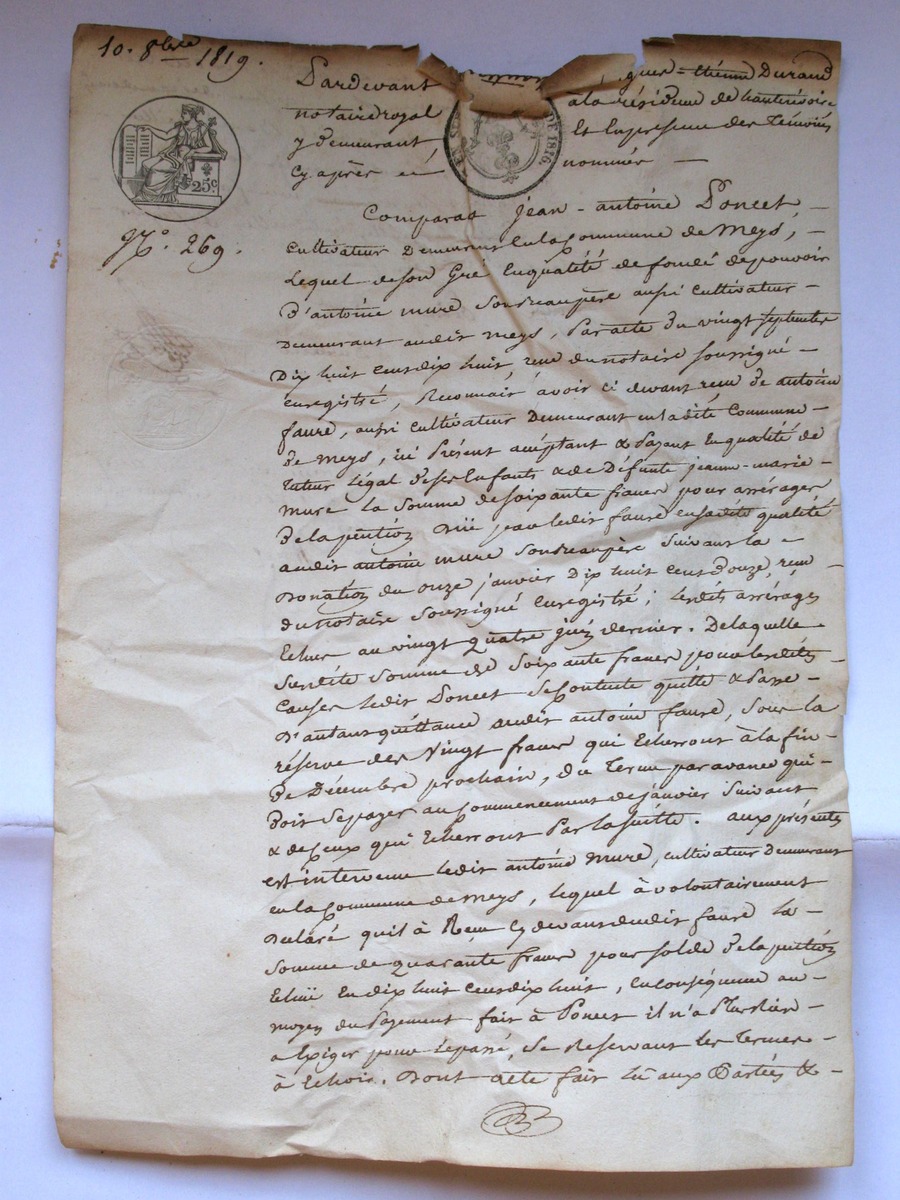 10. 8bre 1819.
Pardevant gues-étienne Durand
notaire royal à la résidence de hauterivoire
y demeurant Et En présence des Témoins
Cy après nommés —
DE 1816.
25c
No. 269.
Comparao Jean-antoine Poncet —
Cultivateur Demeurant En la Commune de Meys,
Lequel de son Gré En qualité de fondé de pouvoir
D'antoine mure son Beaupère aussi cultivateur —
Demeurant audit meys, Par acte du vingt septembre
Dix huit cent dix huit, reçu du notaire soussigné —
enregistré, Reconnait avoir ci devant reçu de antoine
faure, aussi cultivateur Demeurant en ladite Commune —
de Meys, ici Présent acceptant & Payant En qualité de
Tuteur Légal de ses Enfants & de Défunte jeanne-marie —
mure la Somme de soixante francs pour arrérages
De la pention düe par ledit faure en sadite qualité
audit antoine mure son Beaupère suivant la —
Donation du onze janvier Dix huit cent douze, reçu
du notaire soussigné Enregistré; lesdits arrérages
Echus au vingt quatre juin dernier. De laquelle —
susdite somme de soixante francs pour lesdites —
causes ledit Poncet se contente quitte & Passe —
D'autant quittance audit antoine faure, sous la
réserve des Vingt francs qui Echerront à la fin —
de Décembre prochain, du Terme par avance qui —
Doit se payer au Commencement de janvier suivant
& de Ceux qui Echerront Par la suitte. aux présentes
est intervenu ledit antoine Mure, cultivateur Demeurant
en la Commune de meys, lequel à volontairement
Déclaré quil à Reçu Cy devant dudit faure la —
somme de quarante francs pour solde de la pention
Echüe En dix huit cent dix huit, En conséquence au —
moyen du Payement fait à Poncet il n'a Plus Rien —
a Exiger pour le passé, se Reservant les Termes —
à Echoir. Dont acte fait lu aux Parties & —